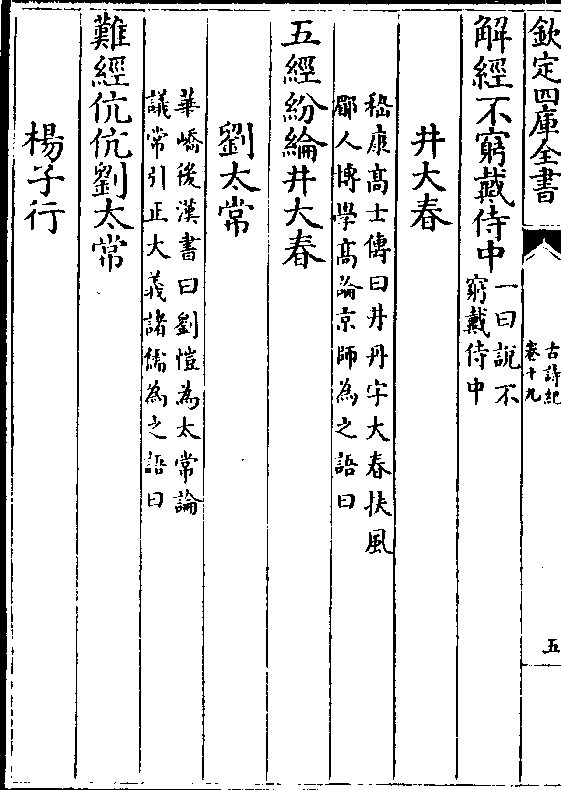 欽定四庫全書
古詩紀
卷十九
五
解經不窮戴侍中
一曰說不
窮戴侍中
井大春
嵇康高士傳曰井丹字大春扶風
郿人博學高論京師為之語曰
五經紛綸井大春
劉太常
華嶠後漢書曰劉愷為太常論
議常引正大義諸儒為之語曰
難經伉伉劉太常
楊子行